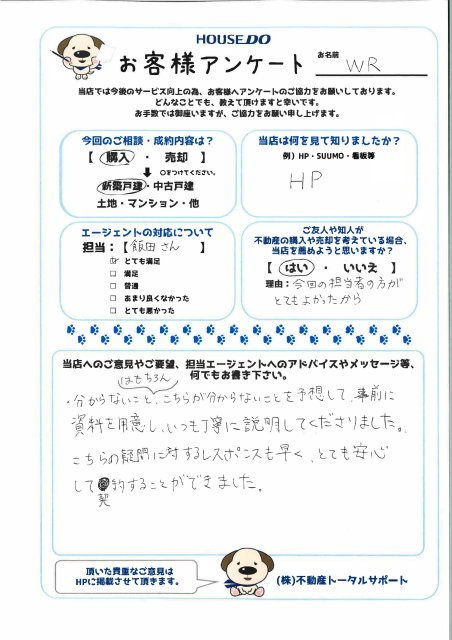 HOUSE DO
お客様アンケート
お名前 WR
当店では今後のサービス向上の為、お客様へアンケートのご協力をお願いしております。
どんなことでも、教えて頂けますと幸いです。
お手数では御座いますが、ご協力をお願い申し上げます。
今回のご相談・成約内容は?
【 購入 ・ 売却 】
〇をつけてください。
新築戸建・中古戸建
土地・マンション・他
当店は何を見て知りましたか?
例) HP・SUUMO・看板等
HP
エージェントの対応について
担当:【飯田さん 】
とても満足
満足
普通
あまり良くなかった
とても悪かった
ご友人や知人が
不動産の購入や売却を考えている場合、
当店を薦めようと思いますか?
【 はい ・ いいえ 】
理由:今回の担当者の方が
とてもよかったから
当店へのご意見やご要望、担当エージェントへのアドバイスやメッセージ等、
何でもお書き下さい。
はもちろん
・分からないこと、こちらが分からないことを予想して、事前に
資料を用意し、いつも丁寧に説明してくださりました。
こちらの疑問に対するレスポンスも早く、とても安心
して約することができました。
契
頂いた貴重なご意見は
HPに掲載させて頂きます。
(株)不動産トータルサポート